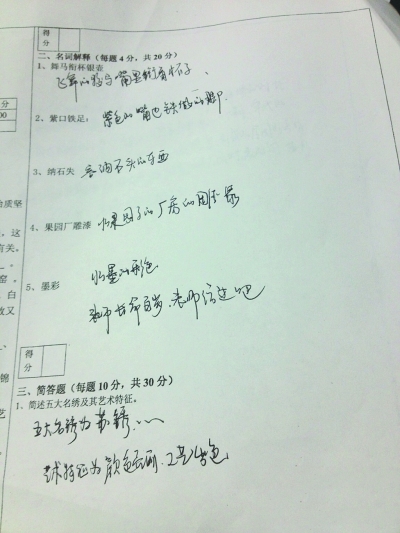 得
分
二、名词解释（每题4分，共20分）
1、舞马衔杯银壶
飞舞的马 嘴里衔着杯子、
2、紫口铁足：
紫色的嘴巴 铁做的脚
3、纳石失
容纳石头的东西
4、果园厂雕漆
水果园子的厂房的围
5、墨彩
水墨的彩色
老师长命百岁、老师给过吧
得
分
三、简答题（每题10分，共30分）
1、简述五大名绣及其艺术特征。
五大名绣为 苏绣……
艺术特征为 颜色
分
00
质坚
这
有关。
窑，
白
故又
锦
艺